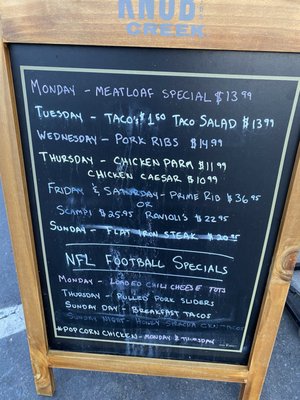 KNOB
CREEK
MONDAY - MEATLOAF SPECIAL $13.99
TUESDAY - TACO'S $1.50 TACO SALAD $13.99
WEDNESDAY - PORK RIBS $14.99
THURSDAY - CHICKEN PARM $11.99
CHICKEN CAESAR $10.99
FRIDAY & SATURDAY - PRIME RIB $36.95
OR
SCAMPI $25.95 RAVIOLI'S $22.95
SUNDAY - FLAT IRON STEAK $20.95
NFL FOOTBALL SPECIALS
MONDAY - LOADED CHILI CHEESE TOTS
THURSDAY - PULLED PORK SLIDERS
SUNDAY DAY - BREAKFAST TACOS
SUNDAY NIGHT - HONEY SIRACHA CKN TACOS
*POPCORN CHICKEN - MONDAY & THURSDAY